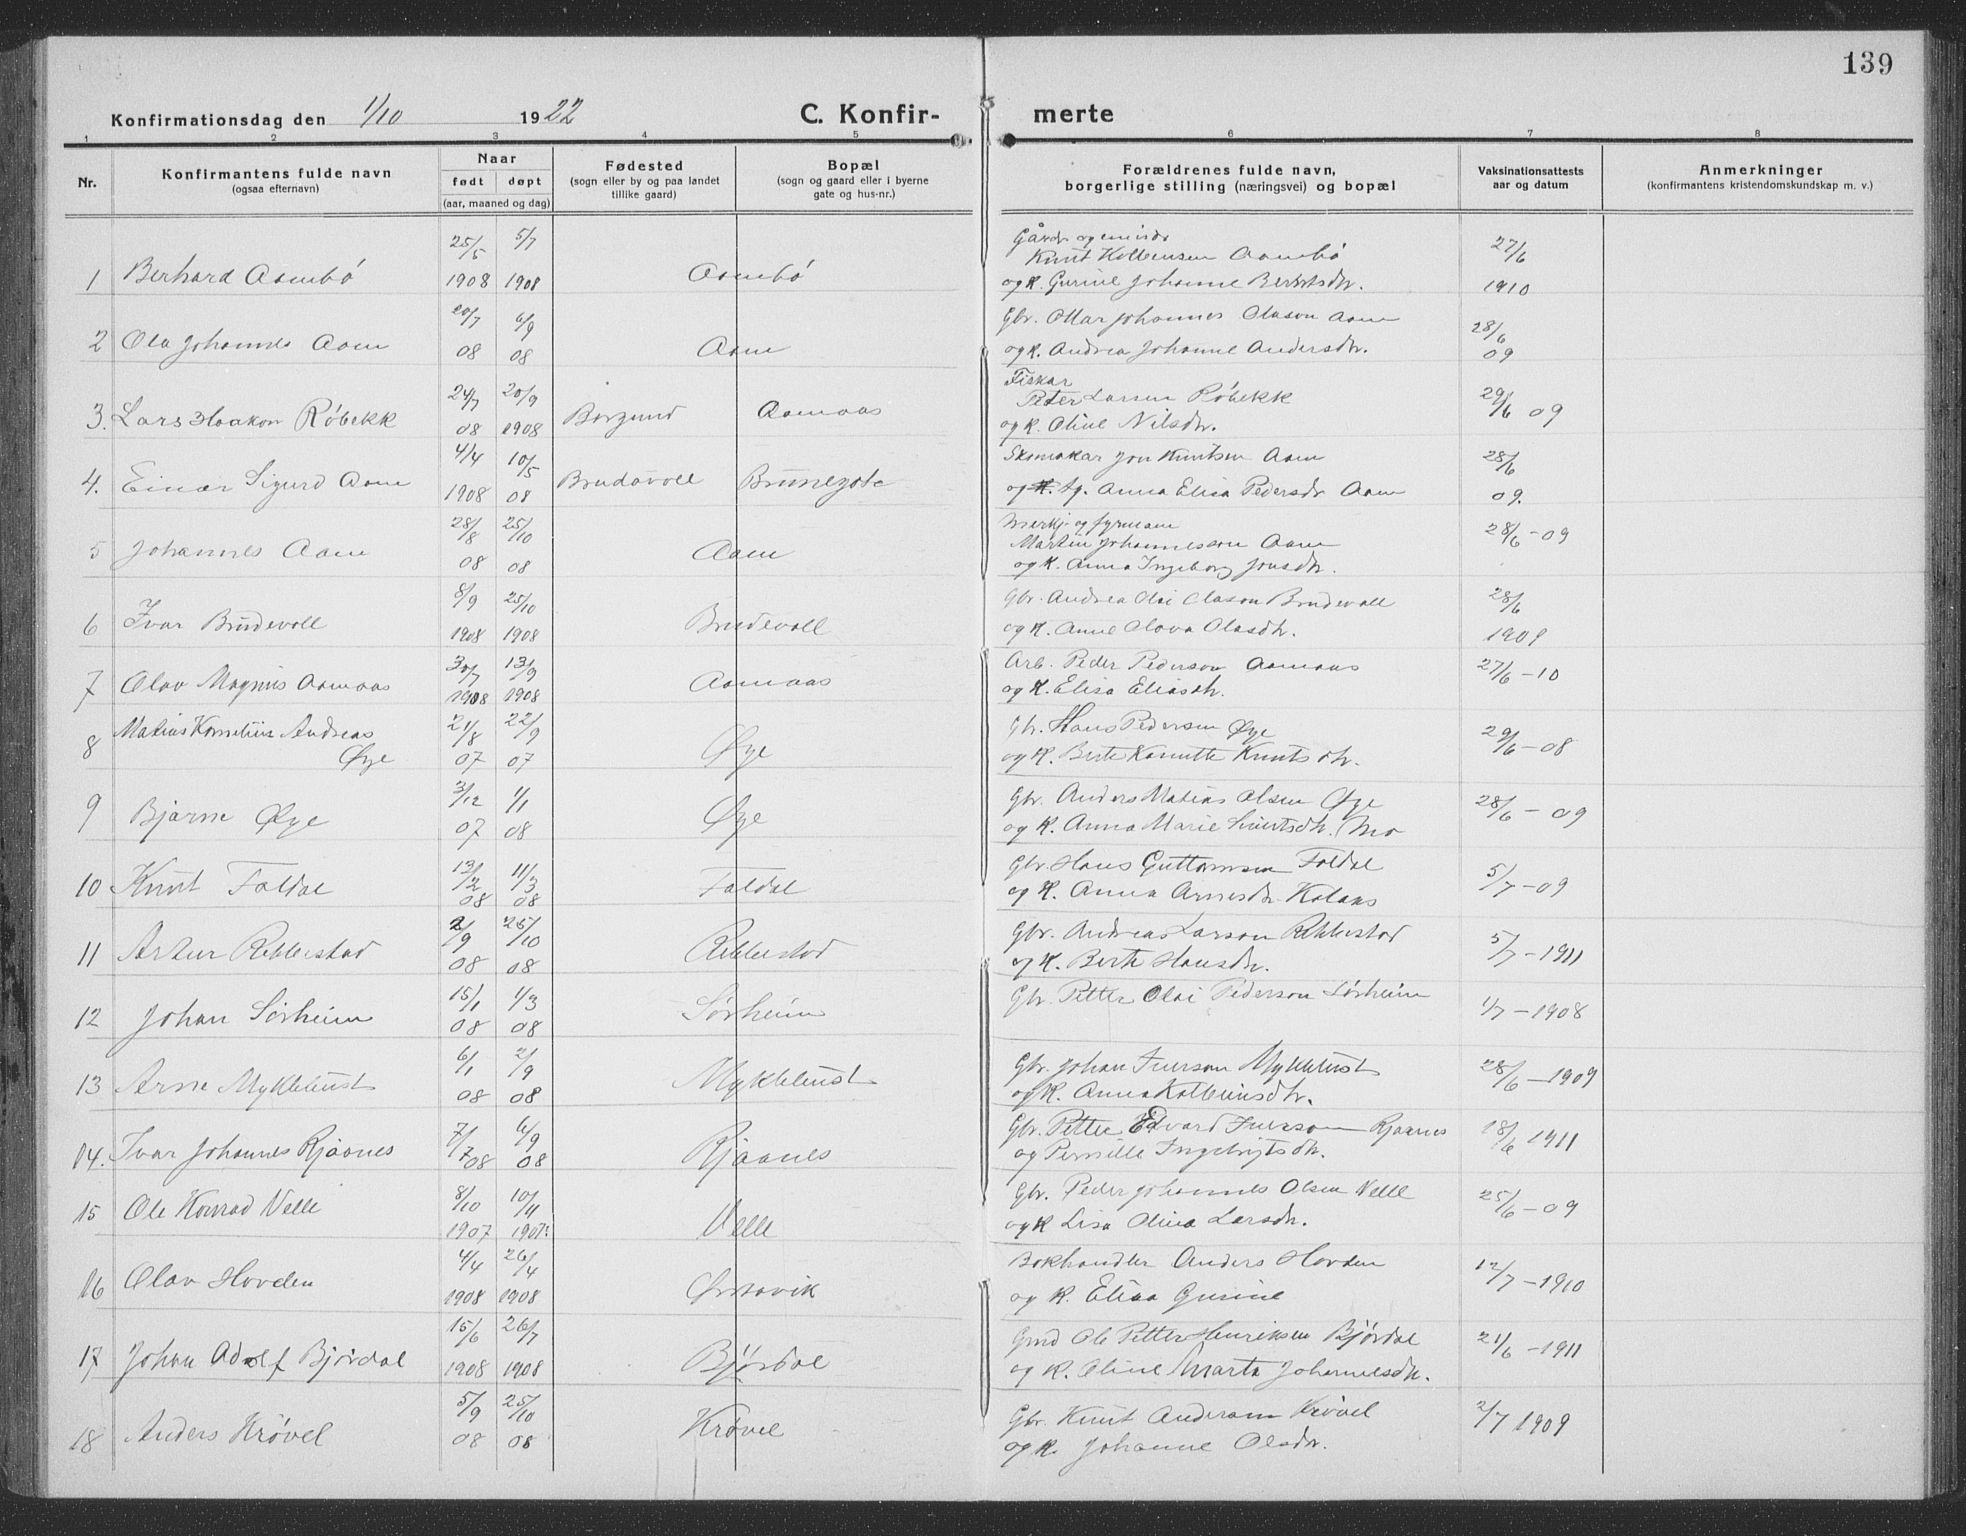 139
Konfirmationsdag den 1/10 1922 C. Konfir- merte
1 2 3 4 5 6 7 8
Nr. Konfirmantens fulde navn (ogsaa efternavn) Naar født døpt (aar, maaned og dag) Fødested (sogn eller by og paa landet tillike gaard) Bopæl (sogn og gaard eller i byerne gate og hus-nr.) Forældrenes fulde navn, borgerlige stilling (næringsvei) og bopæl Vaksinationsattests aar og datum Anmerkninger (konfirmantens kristendomskundskap m. v.)
25/5 5/7 Knut Kolbeinsen Aambø 27/6
1 Berhard Aambø 1908 1908 Aambø og K. Gurine Johanne Berntsdtr. 1910
20/7 6/9 Gbr. Ottar Johannes Olason Aam 28/6
2 Ola Johannes Aam 08 08 Aam og K. Andrea Johanne Andersdtr. 09
24/7 20/9 Fiskar Peter Larsen Røbekk 29/6 09
3. Lars Haakon Røbekk 08 1908 Borgund Aamaas og K. Oline Nilsdtr.
4/4 10/5 Skomakar Jon Knutsen Aam 28/6
4. Einar Sigurd Aam 1908 08 Brudavoll Brunegota Anna Elisa Pedersdr Aam 09.
28/8 25/10 Martin Johannesson Aam 28/6 - 09
5 Johannes Aam 08 08 Aam og K. Anna Ingeborg Jonsdtr.
8/9 25/10 Gbr. Andrea Olai Olason Brudevoll 28/6
6 Ivar Brudevoll 1908 1908 Brudevoll og K. Anne Olava Olasdtr. 1909
30/7 13/9 Arb. Peder Pederson Aamaas 27/6 - 10
7 Olav Magnus Aamaas 1908 1908 Aamaas og K. Elisa Eliasdtr.
Matias Kornelius Andreas 21/8 22/9 Gbr. Hans Pedersen Øye 29/6 - 08
8 Øye 07 07 Øye og K. Berte Kanutte Knutsdtr.
3/12 1/1 Gbr. Anders Matias Olsen Øye 28/6 - 09
9 Bjarne Øye 07 08 Øye og K. Anna Marie Sivertsdtr. Mo
13/2 11/3 Gbr. Hans Guttormsen Foldal 5/7 - 09
10 Knut Foldal 08 08 Foldal og K. Anna Arnesdtr. Kolaas
2/9 25/10 Gbr. Andreas Larson Rebbestad 5/7 - 1911
11 Artur Rebbestad 08 08 Rebbestad og K. Berte Hansdtr.
15/1 1/3 Gbr. Petter Olai Pederson Sørheim 1/7 - 1908
12 Johan Sørheim 08 08 Sørheim
6/1 2/9 Gbr. Johan Iverson Myklebust 28/6 - 1909
13 Arne Myklebust 08 08 Myklebust og K. Anna Kolbeinsdtr.
7/7 6/9 Gbr. Petter Edvard Iversson Rjaanes 18/6 1911
14. Ivar Johannes Rjaanes 08 08 Rjaanes og Pernille Ingebrigtsdtr.
8/10 10/11 Gbr. Peder Johannes Olsen Velle 25/6 - 09
15 Ole Konrad Velle 1907 1907. Velle og K Lisa Olina Larsdtr.
4/4 26/4 Bokhandler Anders Hovden 12/7 - 1910
16 Olav Hovden 1908 1908 Ørstavik og K. Elisa Gurine
15/6 26/7 Ole Petter Henriksen Bjørdal 21/6 - 1911
17 Johan Adolf Bjørdal 1908 1908 Bjørdal og K. Oline Marta Johannesdtr.
5/9 25/10 Gbr. Knut Anderson Krøvel 2/7 1909
18 Anders Krøvel 08 08 Krøvel og K. Johanne Olsdtr.